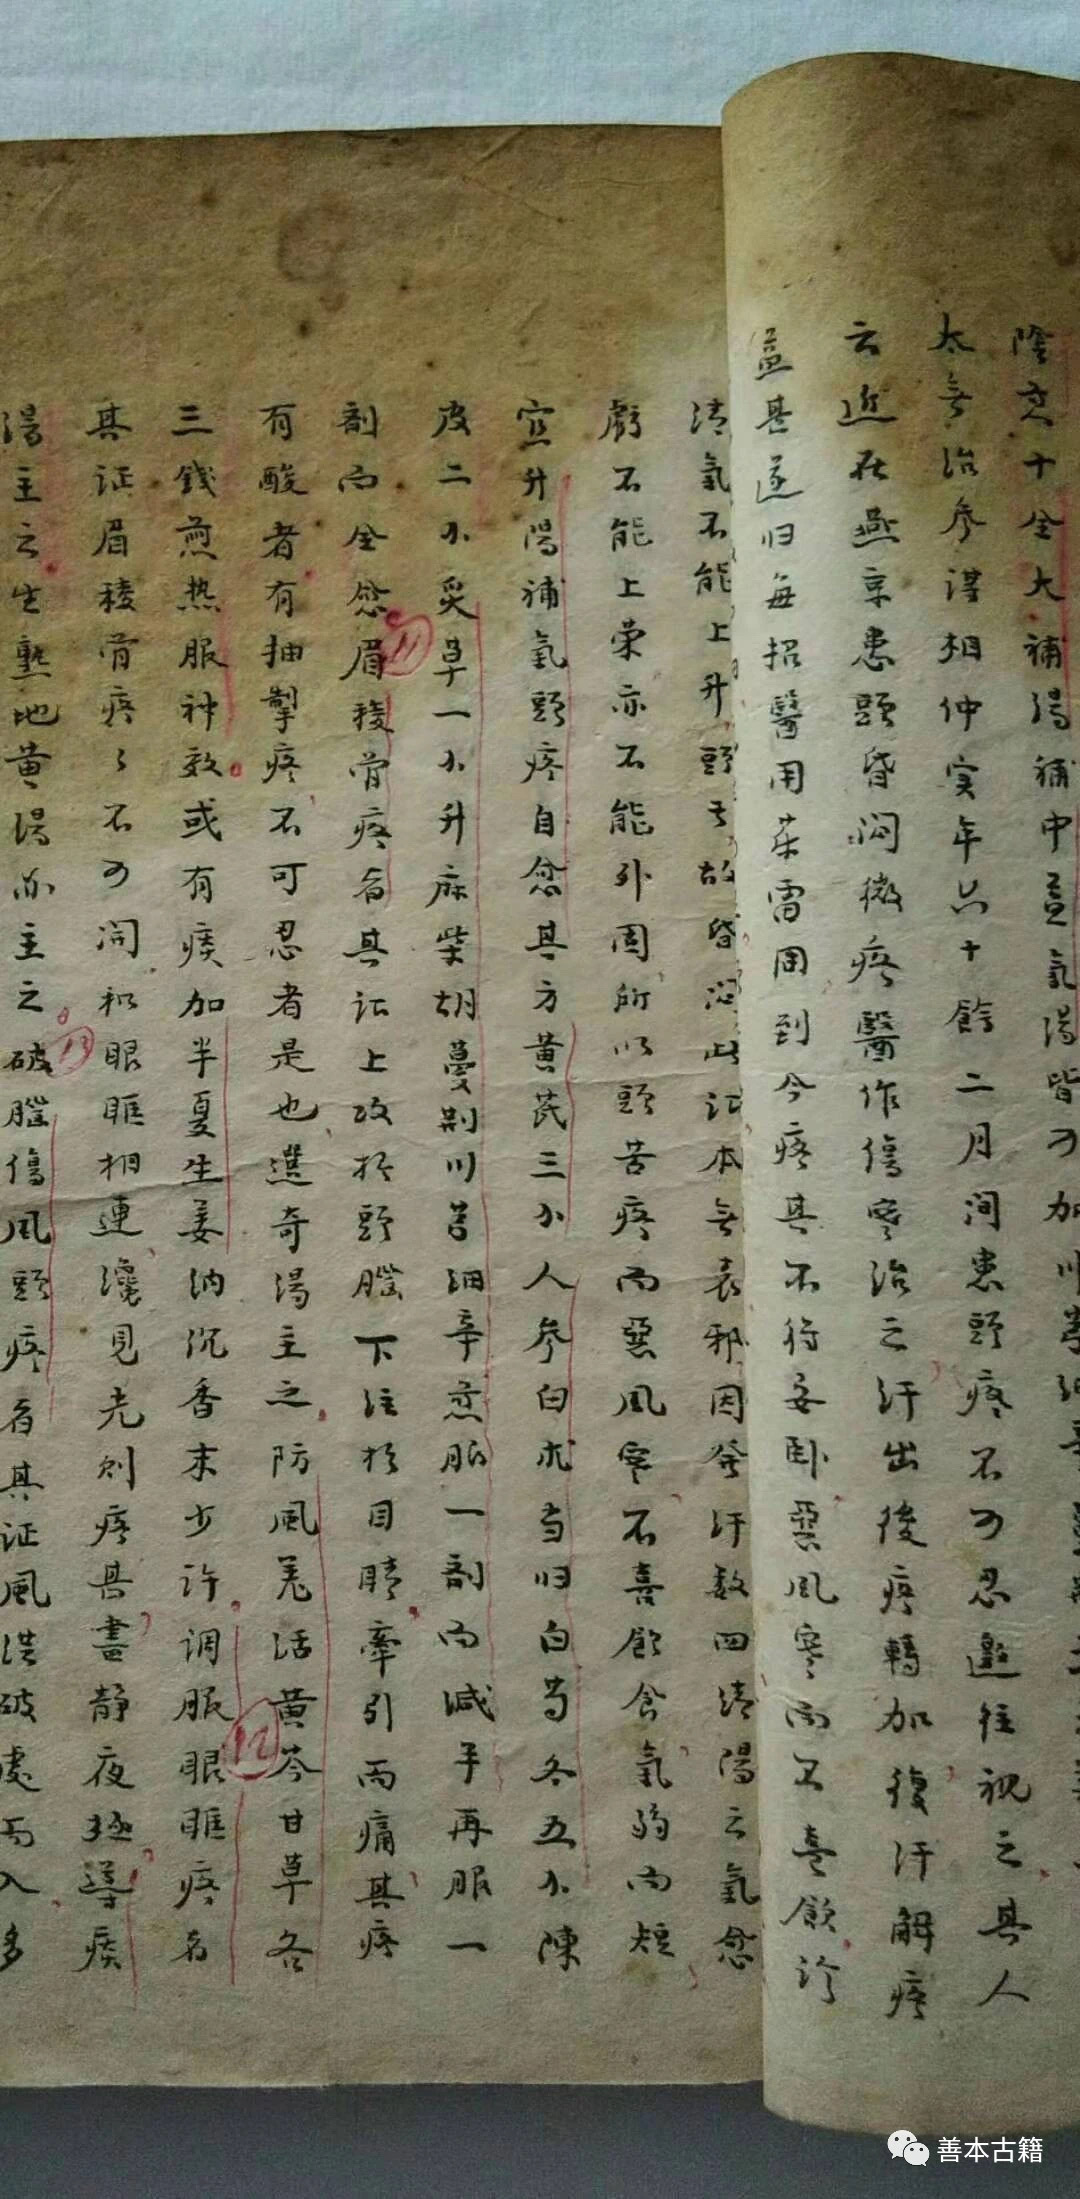 陰虛十全大補湯補中益氣湯皆可加川芎細辛
太無治參謀相仲实年六十餘二月间患頭疼不可忍邀往视之其人
云近在燕京患頭昏闷微疼醫作傷寒治之汗出後疼轉加復汗解疼
益甚遂归每招醫用茶雷同到今疼甚不得安卧惡风寒而不喜飲诊
清氣不能上升頭  故昏闷此证本無表邪因發汗数四清陽之氣愈
虧不能上荣亦不能外固所以頭苦疼而惡風寒不喜飲食氣弱而短
宜升陽補氣頭疼自愈其方黄芪三小人参白朮当归白芍各五小陳
皮二小炙草一小升麻柴胡蔓荆川芎细辛煎服一剤而减半再服一
剤而全愈眉稜骨疼者其证上攻於頭腦下注於目睛牽引而痛其疼
有酸者有抽掣疼不可忍者是也選奇湯主之防風羌活黄芩甘草各
三錢煎热服神效或有痰加半夏生姜汭沉香末少许调服眼眶疼者
其证眉稜骨疼〻不可開和眼眶相連 見光则疼甚晝静夜極導痰
湯主之生熟地黄湯亦主之破腦傷風頭疼者其证風從破處而入多
11
12
13
善本古籍